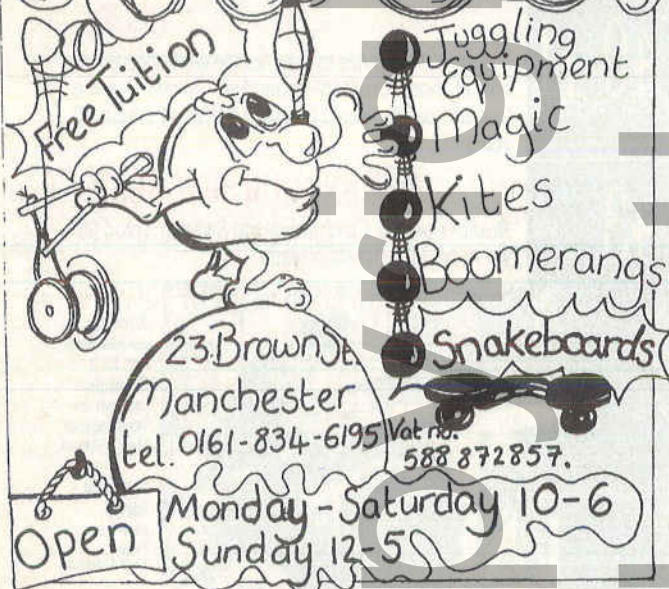 Free Tuition
Juggling
Equipment
Magic
Kites
Boomerangs
Snakeboards
23.Brown St.
Manchester
tel. 0161-834-6195
Vat no.
588 872857.
Open
Monday - Saturday 10-6
Sunday 12-5